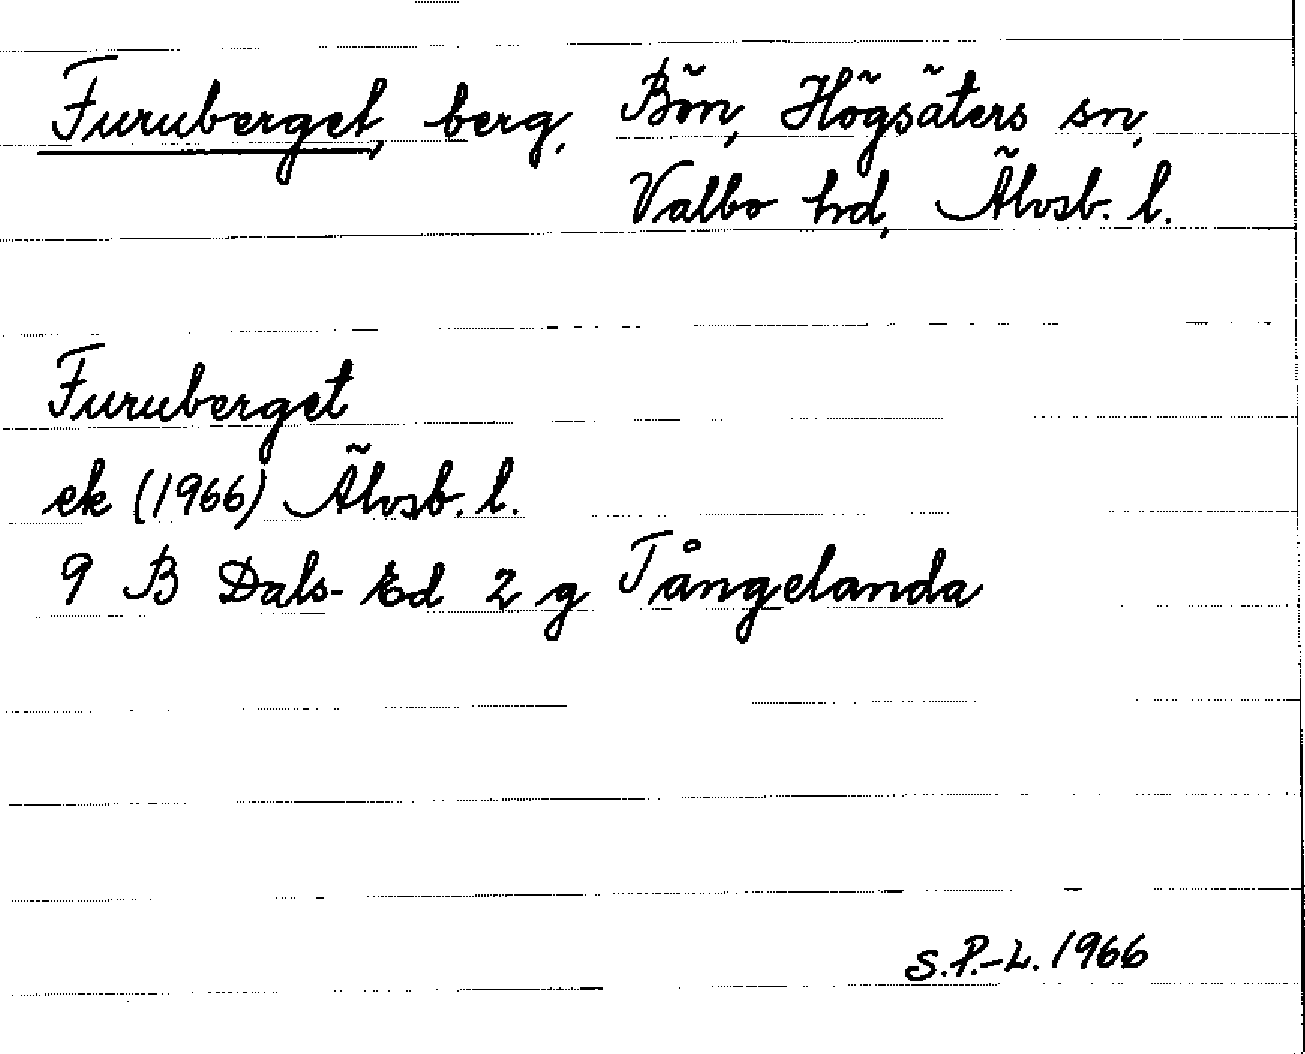 Furuberget, berg, Bön, Högsäters sn,
Valbo hd, Älvsb. l.
Furuberget
ek (1966) Älvsb. l.
9 B Dals-Ed 2 g Tångelanda
S.P.-L. 1966